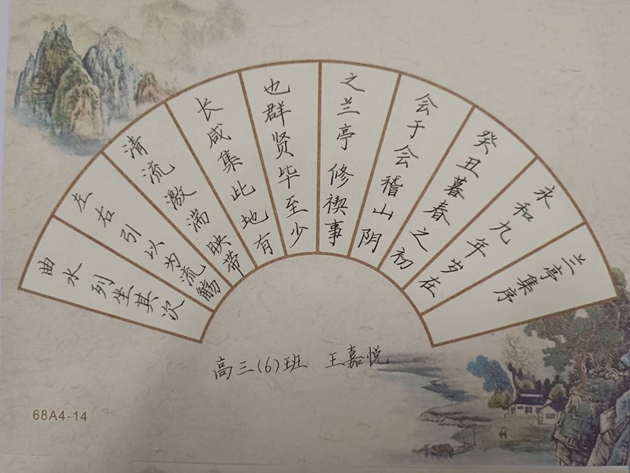 兰亭集序
永和九年岁在
癸丑暮春之初
会于会稽山阴
之兰亭修禊事
也群贤毕至少
长咸集此地有
清流激湍映带
左右引以为流觞
曲水列坐其次
高三(6)班 王嘉悦
68A4-14